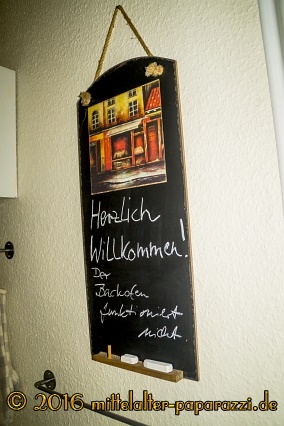 Herzlich
Willkommen!
Der
Backofen
funktioniert
nicht.
© 2016 mittelalter-paparazzi.de